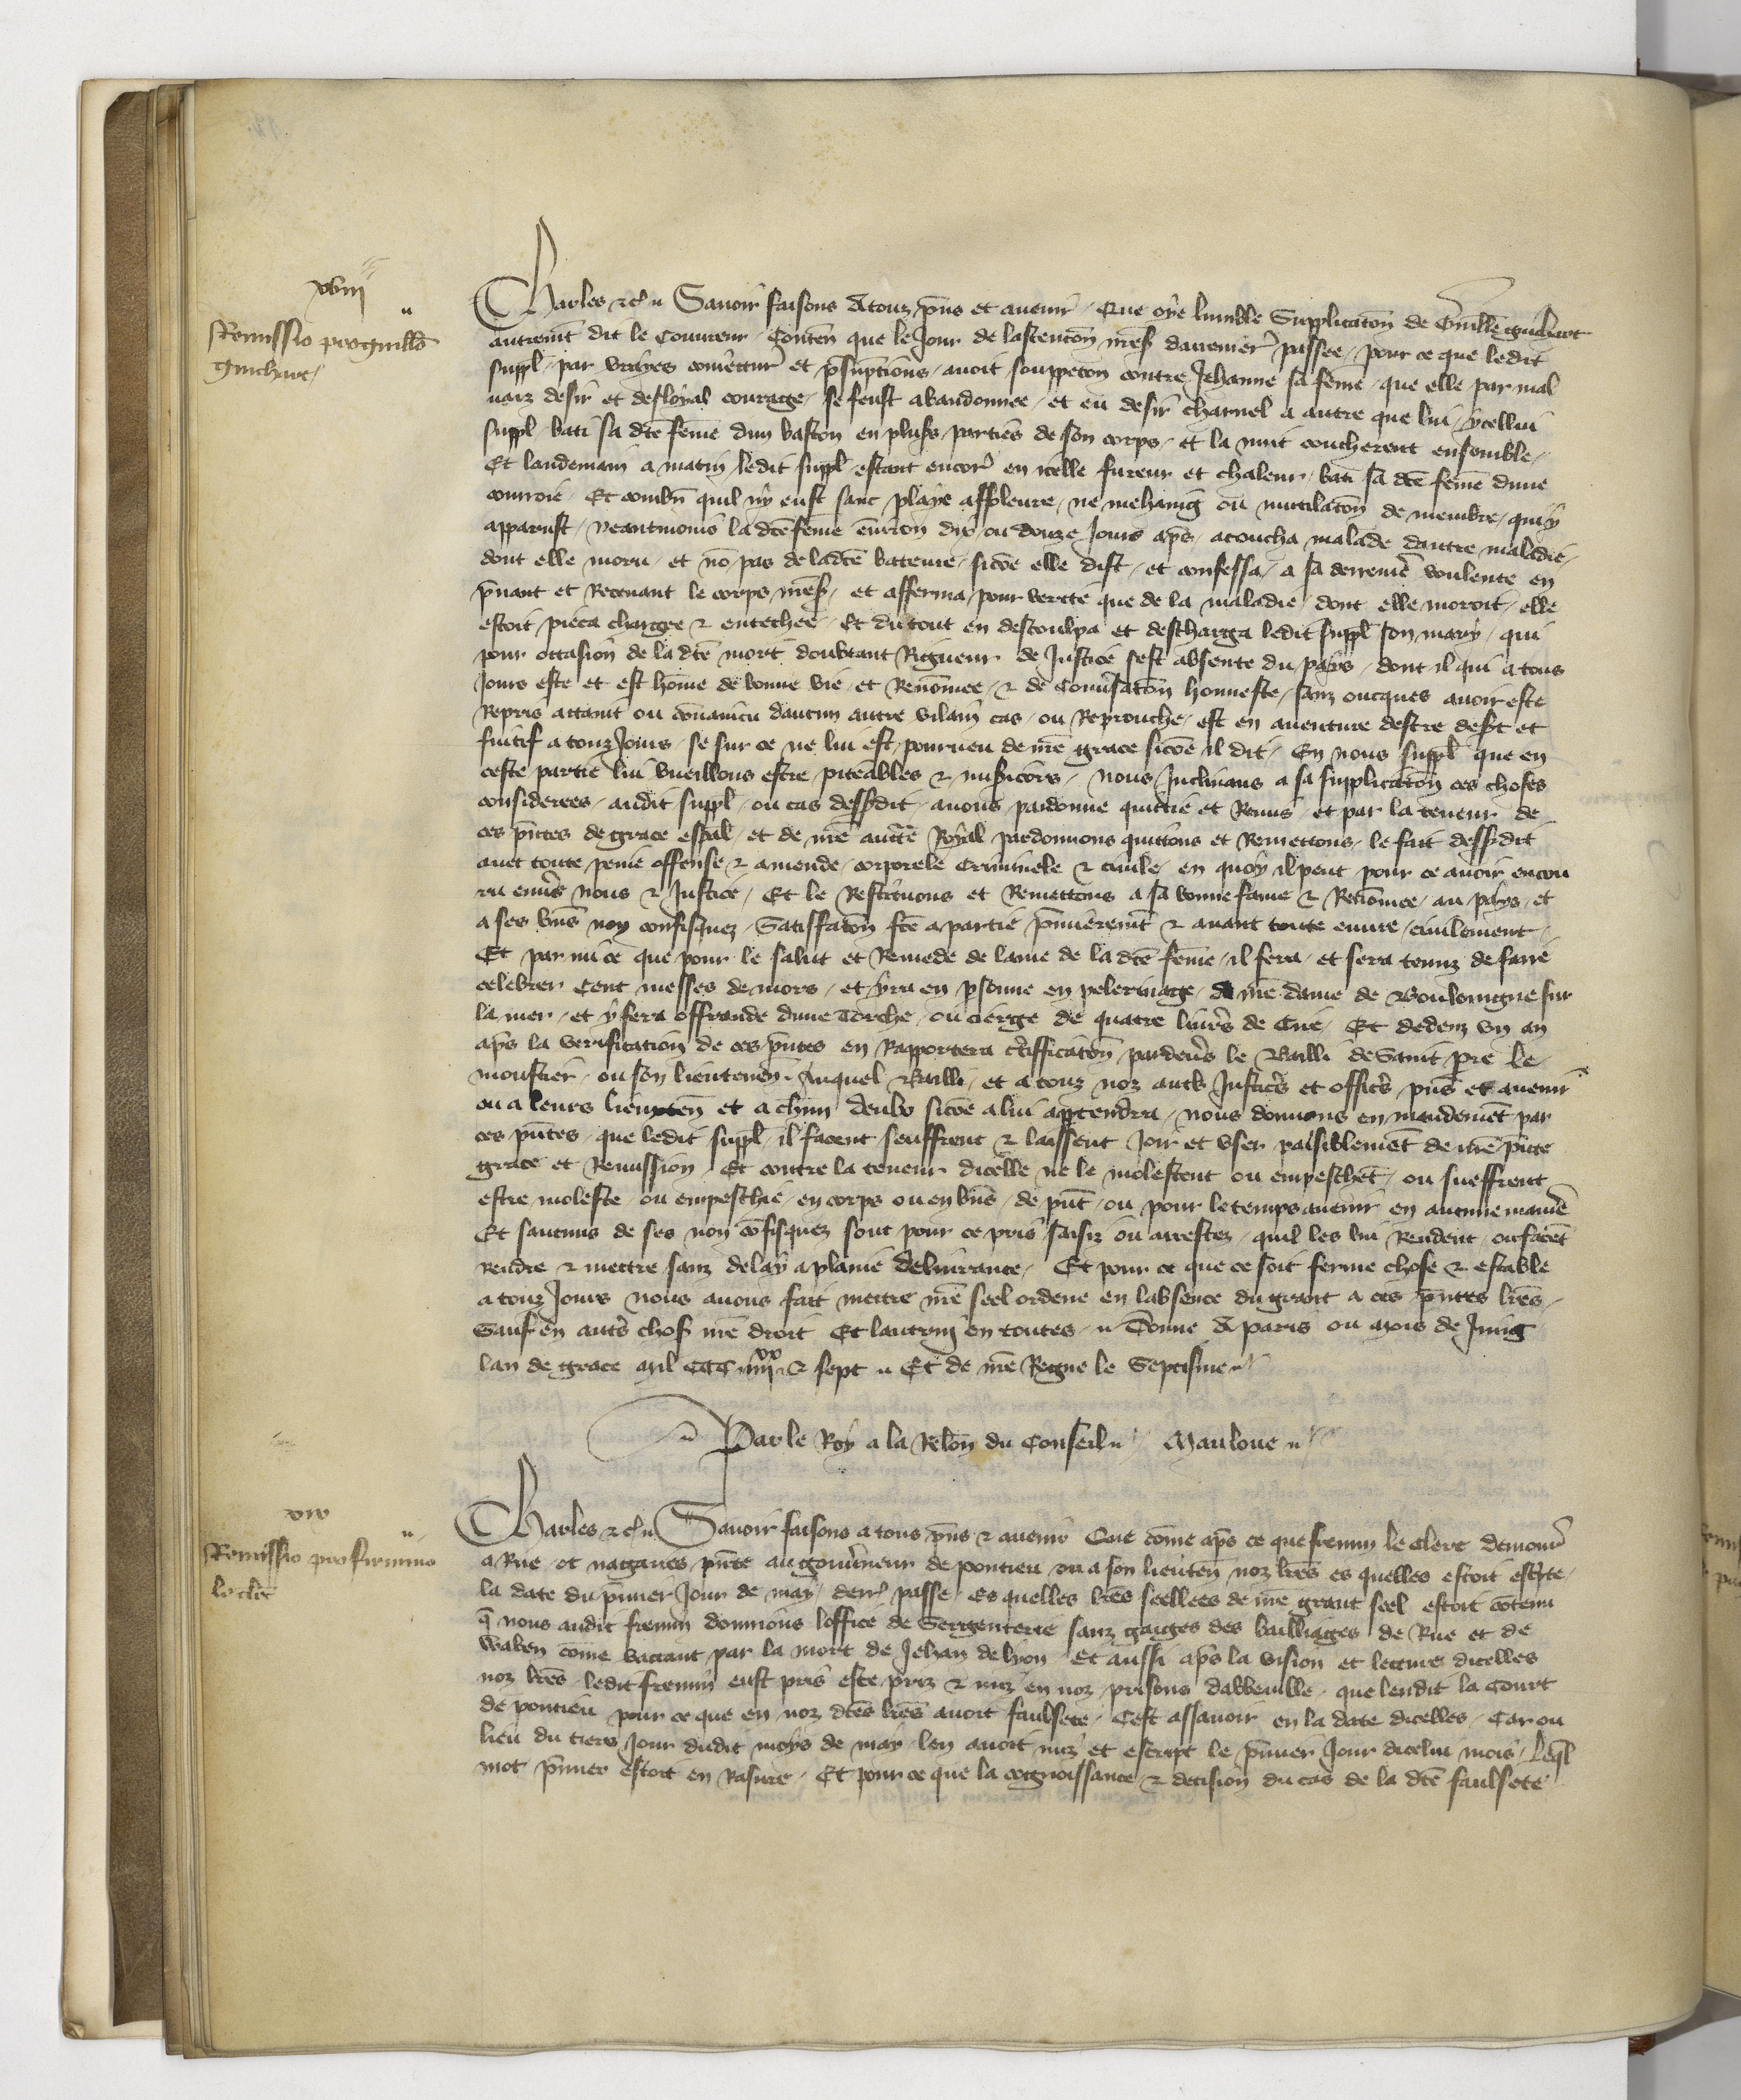 xviii
Remissio pro Guillo
Guichart
Charles etc. Savoir faisons A touz pns et avenir Que oye lumble Supplicaton de Guille Guichart
autremt dit le Couvreur Conten que le Jour de lascencion nres darrenier passee pour ce que ledit
suppl par vrayes coniectur et psumptions avoit souppecon contre Jehanne sa feme que elle par mal
vaiz desir et desloyal courage se feust abandonnee et en desir charnel a autre que lui ycellui
suppl bati sa dte feme dun baston en pluss parties de son corps et la nuit coucherent ensemble
Et landemain a matin ledit suppl estant encor en icelle fureur et chaleur bati sa dte feme dune
courroie Et combn quil ny eust sanc playe affoleure ne mehaing ou mutilaton de membre qui y
apparust Neantmoins la dte feme environ dix ou douze Jours aps acoucha malade dautre maladie
dont elle moru et no pas de ladte bateure sicoe elle dist et confessa a sa derreniere voulente en
pnant et Recevant le corps nres et afferma pour verite que de la maladie dont elle moroit elle
estoit pieca chargee et entechee Et du tout en descoulpa et descharga ledit suppl son mary qui
pour occasion de la dte mort doubtant Rigueur de Justice sest absente du pays dont il qui a tous
Jours este et est home de bonne vie et Renomee et de Conversaton honneste sanz oncques avoir este
Repris attaint ou convaincu daucun autre vilain cas ou Reprouche est en aventure destre desert et
fuitif a touz Jours se sur ce ne lui est pourveu de nre grace sicoe il dit En nous suppl que en
ceste partie lui vueillons estre piteables et misicors Nous Inclinans a sa supplicaton ces choses
considerees audit suppl ou cas dessdit avons pardonne quictie et Remis et par la teneur de
ces pntes de grace espal et de nre aucte Royal pardonnons quittons et Remettons le fait dessdit
avec toute peine offense et amende corporele Criminele et civile en quoy il peut pour ce avoir encou
ru envers nous et Justice Et le Restituons et Remettons a sa bonne fame et Renomee au pays et
a ses bns non confisquez Satisfaton fte a partie premieremt et avant toute euvre civilement
Et parmi ce que pour le salut et Remede de lame de la dte feme il fera et sera tenuz de faire
celebrer Cent messes de mors et yra en psonne en pelerinage a nre dame de Bouloingne sur
la mer et y fera offrande dune Torche ou cierge de quatre livres de Cire Et dedenz un an
aps la verification de ces pntes en Rapportera certifficaton pardevers le Bailli de Saint pre le
moustier ou son lieutenen Auquel Bailli et a touz noz auts Justicrs et officrs pns et avenir
ou a leurs lieuxten et a chun deulx sicoe a lui appartendra Nous donnons en mandement par
ces pntes que ledit suppl il facent seuffrent et laissent Joir et User paisiblement de nre pnte
grace et Remission Et contre la teneur dicelle ne le molestent ou empeschet ou sueffrent
estre moleste ou empeschie en corps ou en bns de pnt ou pour le temps avenir en aucune manie
Et saucuns de ses non confisquez sont pour ce pris saisiz ou arrestez quil les lui Rendent ou facet
Rendre et mettre sanz delay a plaine delivrance Et pour ce que ce soit ferme chose et estable
a touz Jours nous avons fait mettre nre seel ordene en labsence du grant a ces pntes lres
Sauf en autrs chos nre droit Et lautruy en toutes Donne A paris ou mois de Juing
lan de grace Mil CCC iiiixx et sept Et de nre Regne le Septisme
Par le Roy a la Relon du Conseil Mauloue
xix
Remissio pro firmino
le clerc
Charles etc. Savoir faisons a tous pns et avenir Que come aps ce que fremin le clerc demour
a Rue ot nagaires pnte au gouverneur de pontieu ou a son lieuten noz lres es quelles estoit escripte
la date du pmier Jour de may derr passe Es quelles lres seellees de nre grant seel estoit contenu
q nous audit fremin donnions loffice de Sergenterie sanz gaiges des bailliages de Rue et de
Waben come vaccant par la mort de Jehan de lyon Et aussi aps la vision et lecture dicelles
noz lres ledit fremin eust pris este priz et miz en noz prisons dabbeville que lendit la Court
de pontieu pour ce que en noz dtes lres avoit faulsete Cest assavoir en la date dicelles Car ou
lieu du tiers Jour dudit moys de may len avoit miz et escript le pmier Jour dicelui mois Leql
mot pmier estoit en Rasure Et pour ce que la congnoissance et decision du cas de la dte faulsete